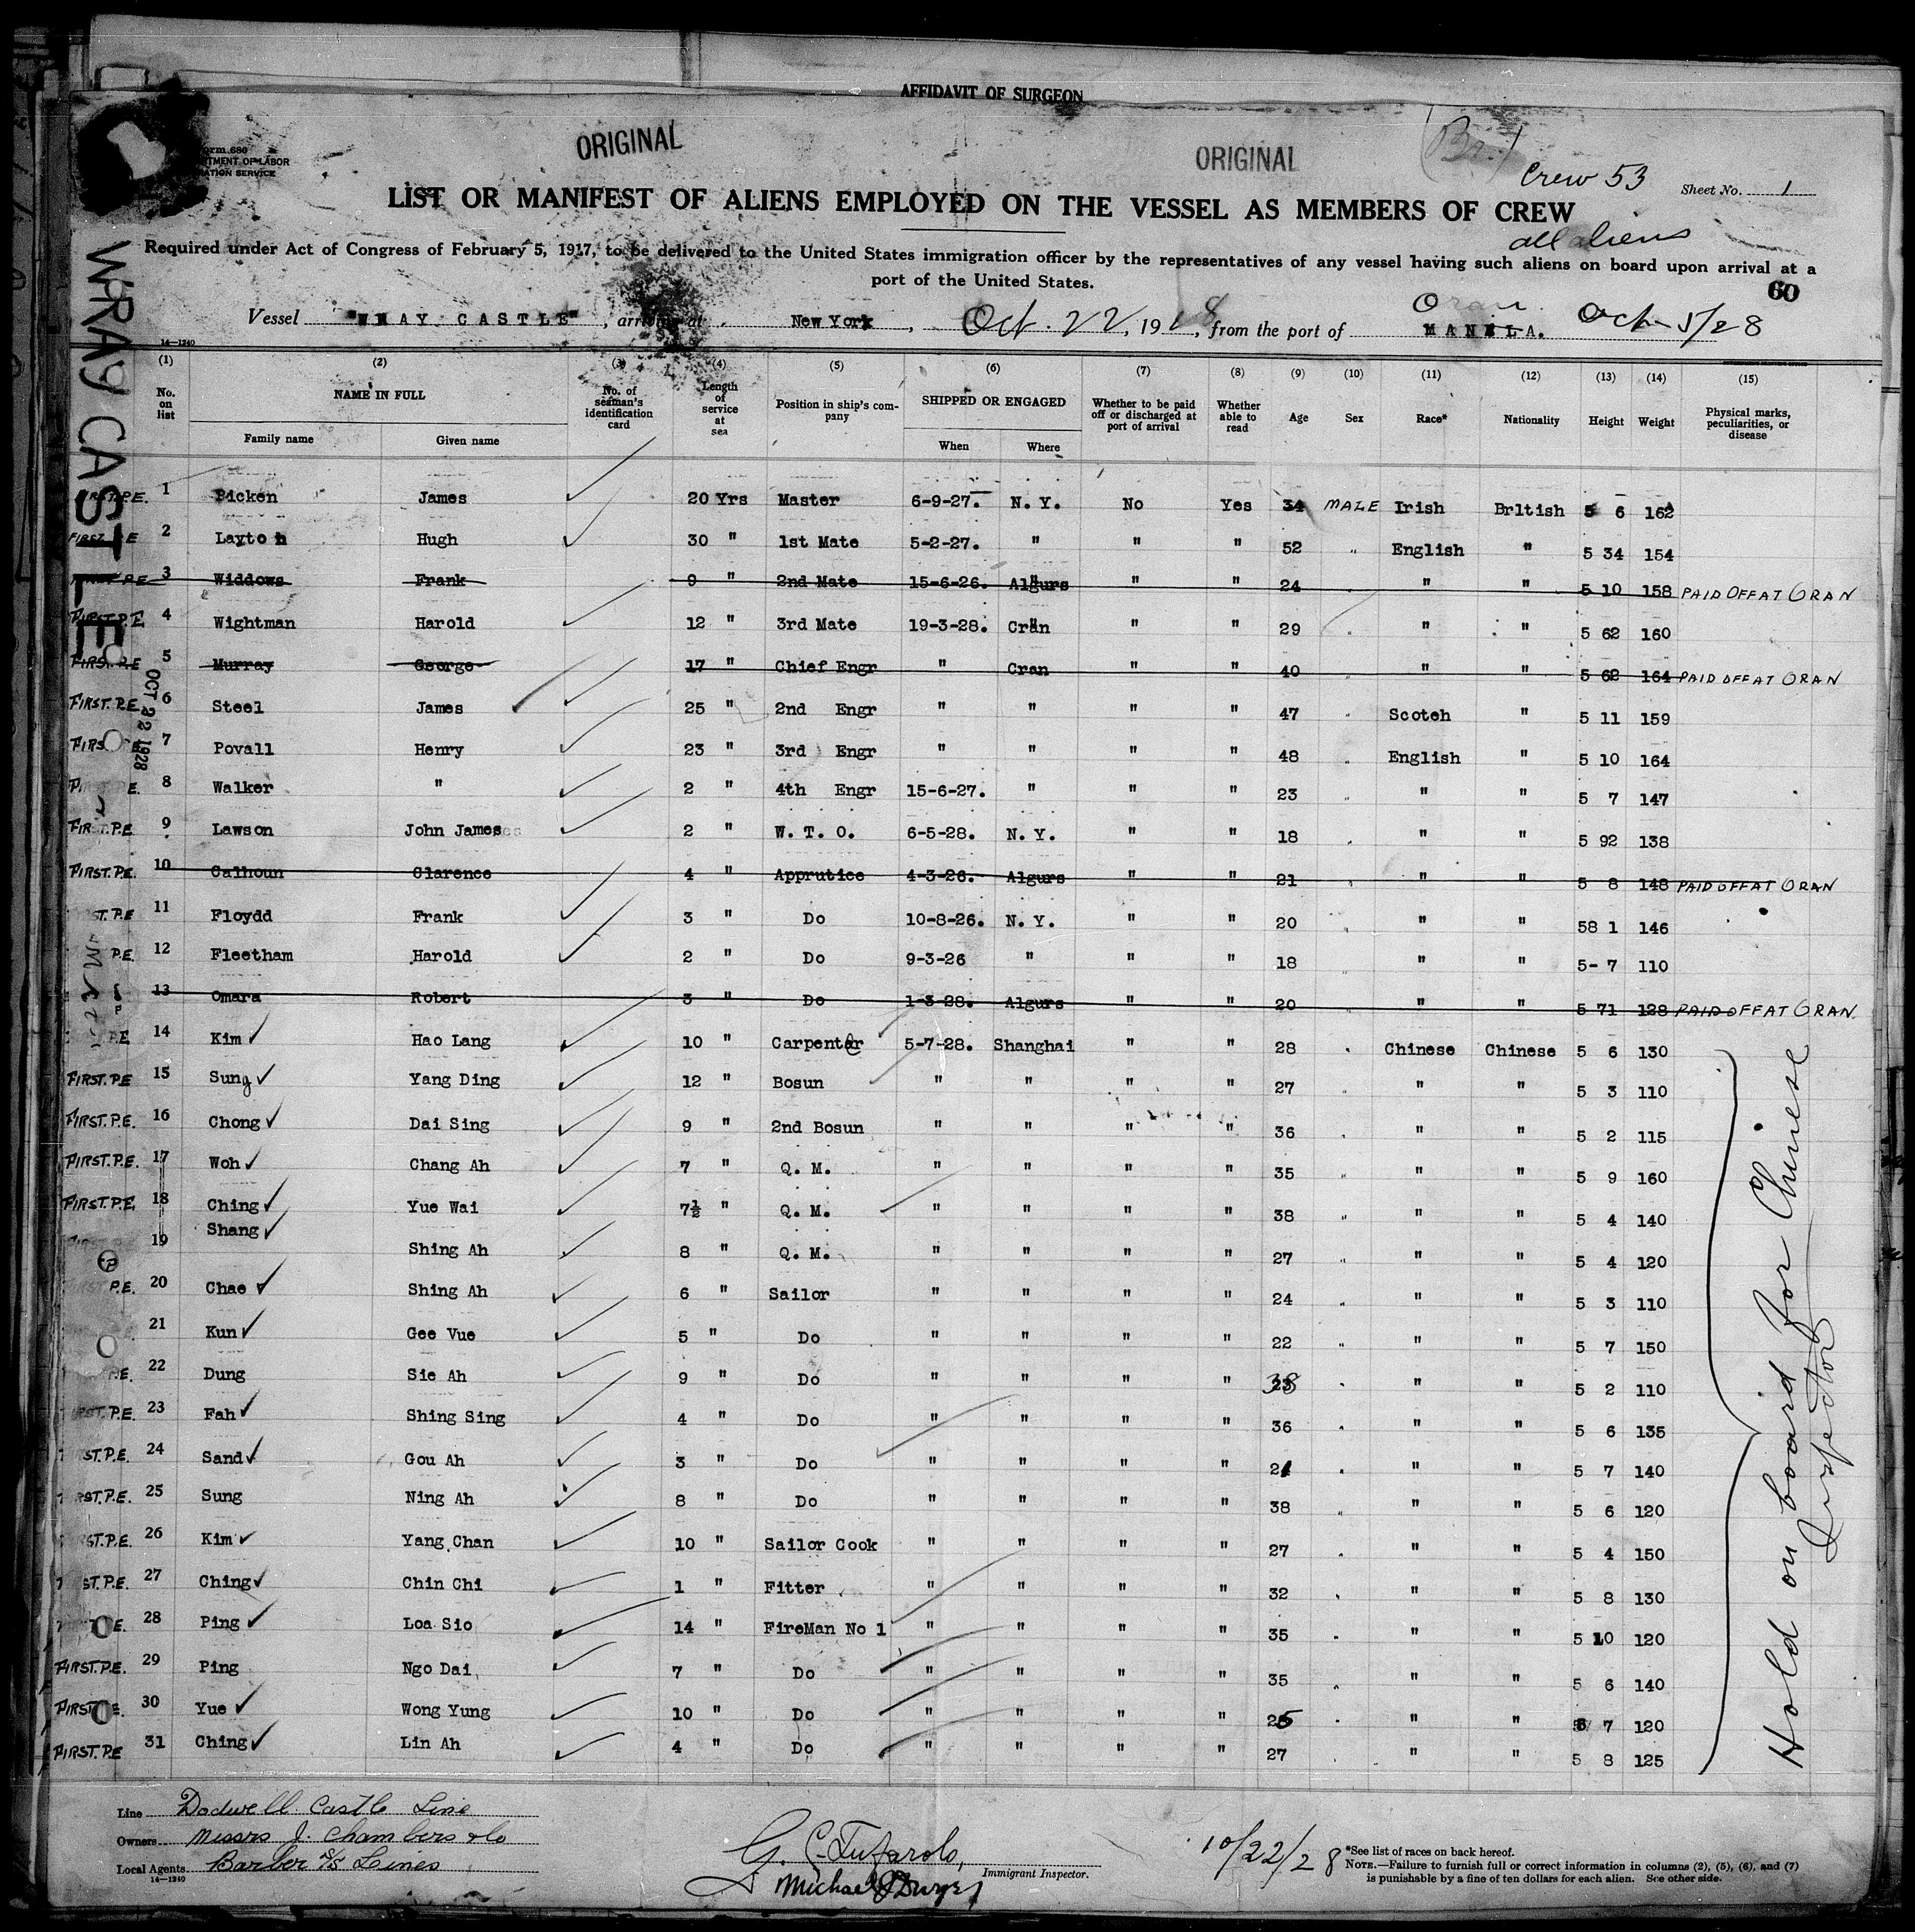 AFFIDAVIT OF SURGEON
ORIGINAL
ORIGINAL
(Br.)
Crew 53
Sheet No. 1
LIST OR MANIFEST OF ALIENS EMPLOYED ON THE VESSEL AS MEMBERS OF CREW
all aliens
Required under Act of Congress of February 5, 1917, to be delivered to the United States immigration officer by the representatives of any vessel having such aliens on board upon arrival at a
port of the United States.
60
Vessel "WRAY CASTLE", arriving at New York, Oct. 22, 1928, from the port of MANILA. Oran Oct 5/28
14—1240
WRAY CASTLE
OCT 22 1928
(1) (2) (3) (4) (5) (6) (7) (8) (9) (10) (11) (12) (13) (14) (15)
No. on list NAME IN FULL Family name Given name No. of seaman's identification card Length of service at sea Position in ship's company SHIPPED OR ENGAGED When Where Whether to be paid off or discharged at port of arrival Whether able to read Age Sex Race* Nationality Height Weight Physical marks, peculiarities, or disease
FIRST.P.E. 1 Bicken James 20 Yrs Master 6-9-27. N. Y. No Yes 34 MALE Irish British 5 6 162
FIRST P.E 2 Layton Hugh 30 " 1st Mate 5-2-27. " " " 52 " English " 5 34 154
FIRST P.E. 3 Widdows Frank 9 " 2nd Mate 15-6-26. Algurs " " 24 " " 5 10 158 PAID OFF AT ORAN
FIRST P.E 4 Wightman Harold 12 " 3rd Mate 19-3-28. Cran " " 29 " " 5 62 160
FIRST.P.E 5 Murray George 17 " Chief Engr " Cran " " 40 " " 5 62 164 PAID OFF AT ORAN
FIRST.P.E 6 Steel James 25 " 2nd Engr " " " " 47 " Scotch " 5 11 159
FIRS 7 Povall Henry 23 " 3rd Engr " " " " 48 " English " 5 10 164
E. 8 Walker " 2 " 4th Engr 15-6-27. " " " 23 " " " 5 7 147
FIRST.P.E 9 Lawson John James 2 " W. T. O. 6-5-28. N. Y. " " 18 " " 5 92 138
FIRST.P.E. 10 Calhoun Clarence 4 " Apprutice 4-3-26. Algurs " " 21 " " " 5 8 148 PAID OFF AT ORAN
ST.P.E 11 Floydd Frank 3 " Do 10-8-26. N. Y. " " 20 " " " 58 1 146
P.E. 12 Fleetham Harold 2 " Do 9-3-26 " " " 18 " " " 5- 7 110
13 Omara Robert 3 " Do 1-3-28. Algurs " " 20 " " 5 71 128 PAID OFF AT ORAN.
P.E 14 Kim Hao Lang 10 " Carpenter 5-7-28. Shanghai " " 28 " Chinese Chinese 5 6 130
FIRST.P.E 15 Sung Yang Ding 12 " Bosun " " " " 27 " " 5 3 110
FIRST.P.E. 16 Chong Dai Sing 9 " 2nd Bosun " " " " 36 " " " 5 2 115
FIRST.P.E. 17 Woh Chang Ah 7 " Q. M. " " " " 35 " " " 5 9 160
FIRST.P.E. 18 Ching Yue Wai 7½ " Q. M. " " " " 38 " " " 5 4 140
19 Shang Shing Ah 8 " Q. M. " " " " 27 " " " 5 4 120
FIRST P.E. 20 Chae Shing Ah 6 " Sailor " " " " 24 " " " 5 3 110
21 Kun Gee Vue 5 " Do " " " " 22 " " " 5 7 150
P.E. 22 Dung Sie Ah 9 " Do " " " " 38 " " " 5 2 110
RST.P.E. 23 Fah Shing Sing 4 " Do " " " " 36 " " " 5 6 135
ST.P.E. 24 Sand Gou Ah 3 " Do " " " " 21 " " " 5 7 140
RST.P.E. 25 Sung Ning Ah 8 " Do " " " " 38 " " " 5 6 120
RST.P.E. 26 Kim Yang Chan 10 " Sailor Cook " " " " 27 " " " 5 4 150
ST.P.E. 27 Ching Chin Chi 1 " Fitter " " " " 32 " " " 5 8 130
E. 28 Ping Loa Sio 14 " FireMan No 1 " " " " 35 " " " 5 10 120
FIRST.P.E. 29 Ping Ngo Dai 7 " Do " " " " 35 " " " 5 6 140
FIRST E. 30 Yue Wong Yung 10 " Do " " " " 25 " " " 5 7 120
FIRST.P.E 31 Ching Lin Ah 4 " Do " " " " 27 " " " 5 8 125
Hold on board for Chinese
Inspector
Line Dodwell Castle Line
Owners Messrs J. Chambers & Co
Local Agents Barber S/S Lines
14—1240
G. C. Tufarolo,
Michael J Dwyer
Immigrant Inspector.
10/22/28
*See list of races on back hereof.
NOTE.—Failure to furnish full or correct information in columns (2), (5), (6), and (7)
is punishable by a fine of ten dollars for each alien. See other side.